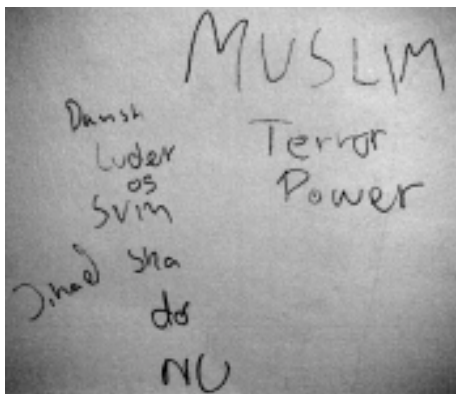 MUSLIM
Terror
Power
Dansk
Luder
os
Svin
Jihad ska
dø
NU